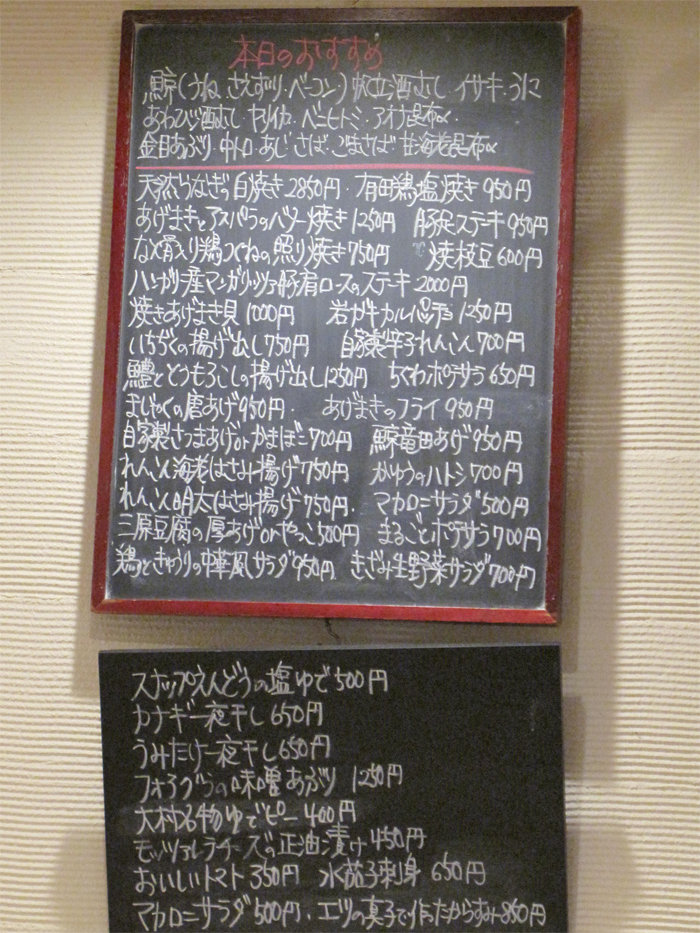 本日のおすすめ
鯨(うね、さえずり、ベーコン) 帆立酒むし イサキ、うに
酒むし ヤリイカ、ベニヒトミ、アイナ昆布〆
金目あぶり、中トロ、あじ、さば、ごまさば 甘海老昆布〆
天然うなぎの白焼き2850円・有田鶏塩焼き950円
あげまきとアスパラのバター焼き1250円 豚足ステーキ950円
なん骨入り鶏つくねの照り焼き750円 焼枝豆600円
ハンガリー産マンガリッツァ豚肩ロースのステーキ2000円
焼きあげまき貝1000円 岩ガキカルパッチョ1250円
いちぢくの揚げ出し750円 自家製辛子れんこん700円
鱧ととうもろこしの揚げ出し1250円 ちくわポテサラ650円
まじゃくの唐あげ950円・ あげまきのフライ950円
自家製さつまあげorかまぼこ700円 鯨竜田あげ950円
れんこん海老はさみ揚げ750円 かゆうのハトシ700円
れんこん明太はさみ揚げ750円・ マカロニサラダ500円
三原豆腐の厚あげorやっこ500円 まるごとポテサラ700円
鶏ときゅうりの中華風サラダ950円 きざみ生野菜サラダ700円
スナップえんどうの塩ゆで500円
カナギ一夜干し650円
うみたけ一夜干し650円
フォアグラの味噌あぶり 1250円
大村名物ゆでピー400円
モッツァレラチーズの正油漬け450円
おいしいトマト350円 水茄子刺身 650円
マカロニサラダ500円、エツの真子で作ったからすみ850円